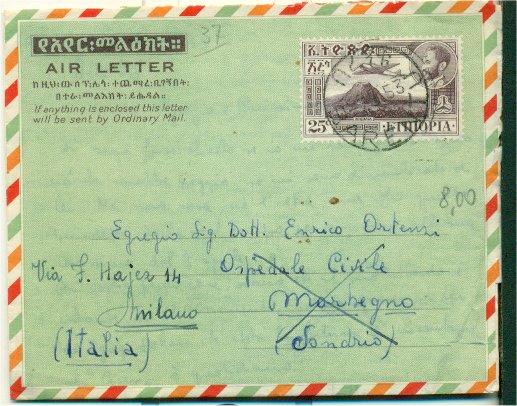 የአየር፡መልዕክት።
37
AIR LETTER
ከዚህ፡ውስጥ፡ሌላ፡ተጨማሪ፡ቢገኝበት፡
በተራ፡መልእክት፡ይሔዳል።
If anything is enclosed this letter
will be sent by Ordinary Mail.
ኢትዮጵያ
25ᶜ ETHIOPIA
53
8,00
Egregio Sig. Dott. Enrico Ortensi
Via F. Hajez 14 Ospedale Civile
Milano Morbegno
(Italia) (Sondrio)